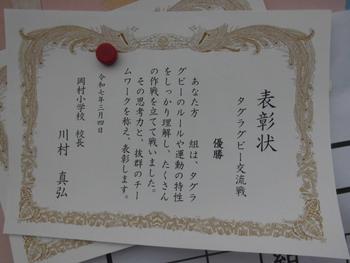 表彰状
タグラグビー交流戦
優勝
あなた方 組は、タグラ
グビーのルールや運動の特性
をしっかり理解し、たくさん
の作戦を立てて戦いました。
その思考力と、抜群のチー
ムワークを称え、表彰します。
令和七年三月四日
岡村小学校 校長
川村 真弘